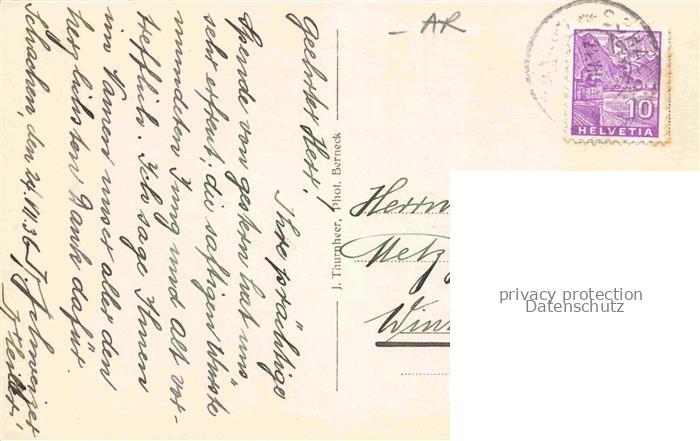 Geehrter Herr!
Ihre prächtige
Spende von gestern hat uns
sehr erfreut, die saftigen Würste
mundeten Jung und Alt vor-
trefflich. Ich sage Ihnen
im Namen unser aller den
herzlichsten Dank dafür
Schachen, den 24. VII. 36
J. Thurnheer, Phot. Berneck
- AR
Herrn
Metzg
Wint
10
HELVETIA
privacy protection
Datenschutz